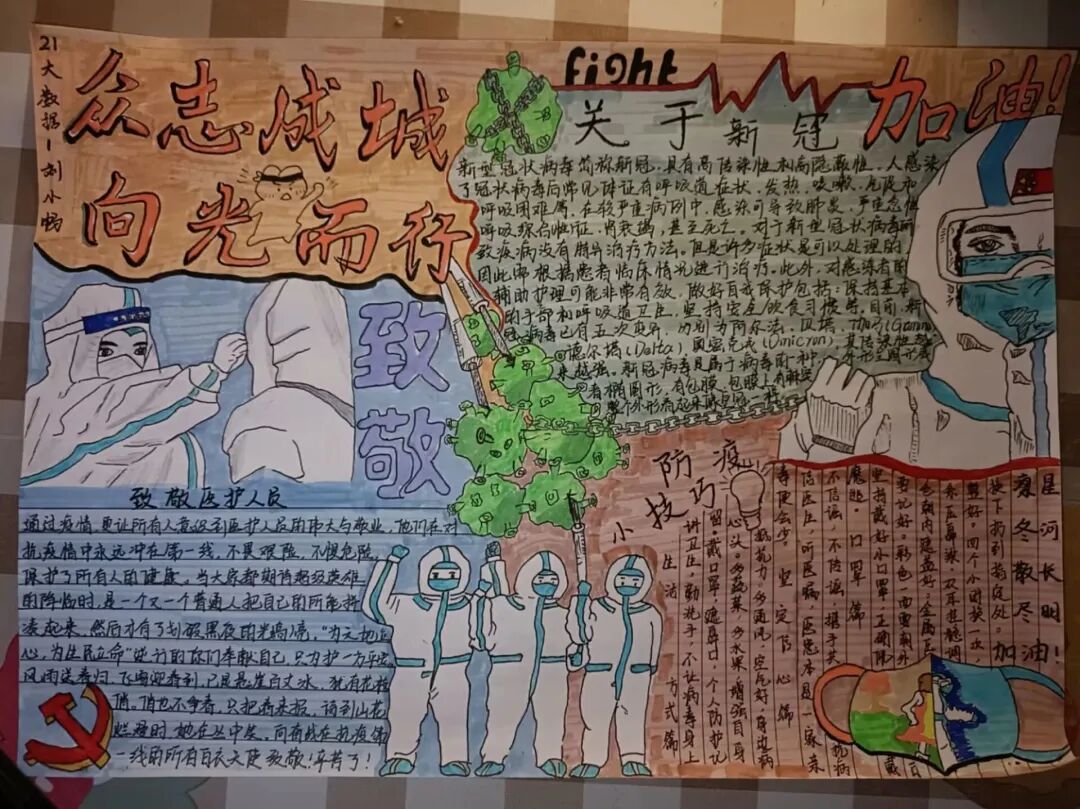 21大数据-刘小畅
众志成城
向光而行
fight
加油!
关于新冠
新型冠状病毒简称新冠,具有高传染性和高隐蔽性。人感染
了冠状病毒后常见体征有呼吸道症状、发热、咳嗽、气促和
呼吸困难等。在较严重病例中,感染可导致肺炎、严重急性
呼吸综合征、肾衰竭,甚至死亡。对于新型冠状病毒所
致疾病没有特异治疗方法。但是许多症状是可以处理的
因此需根据患者临床情况进行治疗。此外,对感染者的
辅助护理可能非常有效,做好自我保护包括:保持基本
的手部和呼吸道卫生,坚持安全饮食习惯等。目前,新
冠病毒已有五次变异,分别为阿尔法、贝塔、(Gamma)
德尔塔(Delta)奥密克戎(Omicron)其传染性越
来越强。新冠病毒是属于病毒的一种
者椭圆形,有包膜,包膜上有
整个外形看起来跟皇冠一样
致敬
致敬医护人员
通过疫情,更让所有人意识到医护人员的伟大与敬业,他们在对
抗疫情中永远冲在第一线,不畏艰险,不惧危险,
保护了所有人的健康。当大家都期待超级英雄
的降临时,是一个又一个普通人把自己的所能拼
凑起来,然后才有了划破黑夜的光鸣响,“为天地立
心,为生民立命”逆行的你们奉献自己,只为护一方平安。
风雨送春归,飞雪迎春到,已是悬崖百丈冰,犹有花枝
俏。俏也不争春,只把春来报,待到山花
烂漫时,她在丛中笑。向奋战在抗疫第
一线的所有白衣天使致敬,辛苦了!
防疫
小技巧
星河长明
凛冬散尽
加油!
按下捌到指定处。
整好。四个小团契一次,
要记好。彩色一面要朝外
坚持戴好小口罩,正确佩
魔悲。口罩篇
不信谣,不传谣,携手共
信医生,听医嘱,
毒便会少。坚定信心篇
抵抗力,多通风,空气好,身边病
心头。多蔬菜,多水果,增强自身
留,戴口罩,遮鼻口,个人防护记
讲卫生,勤洗手,不让病毒身上
生活方式篇